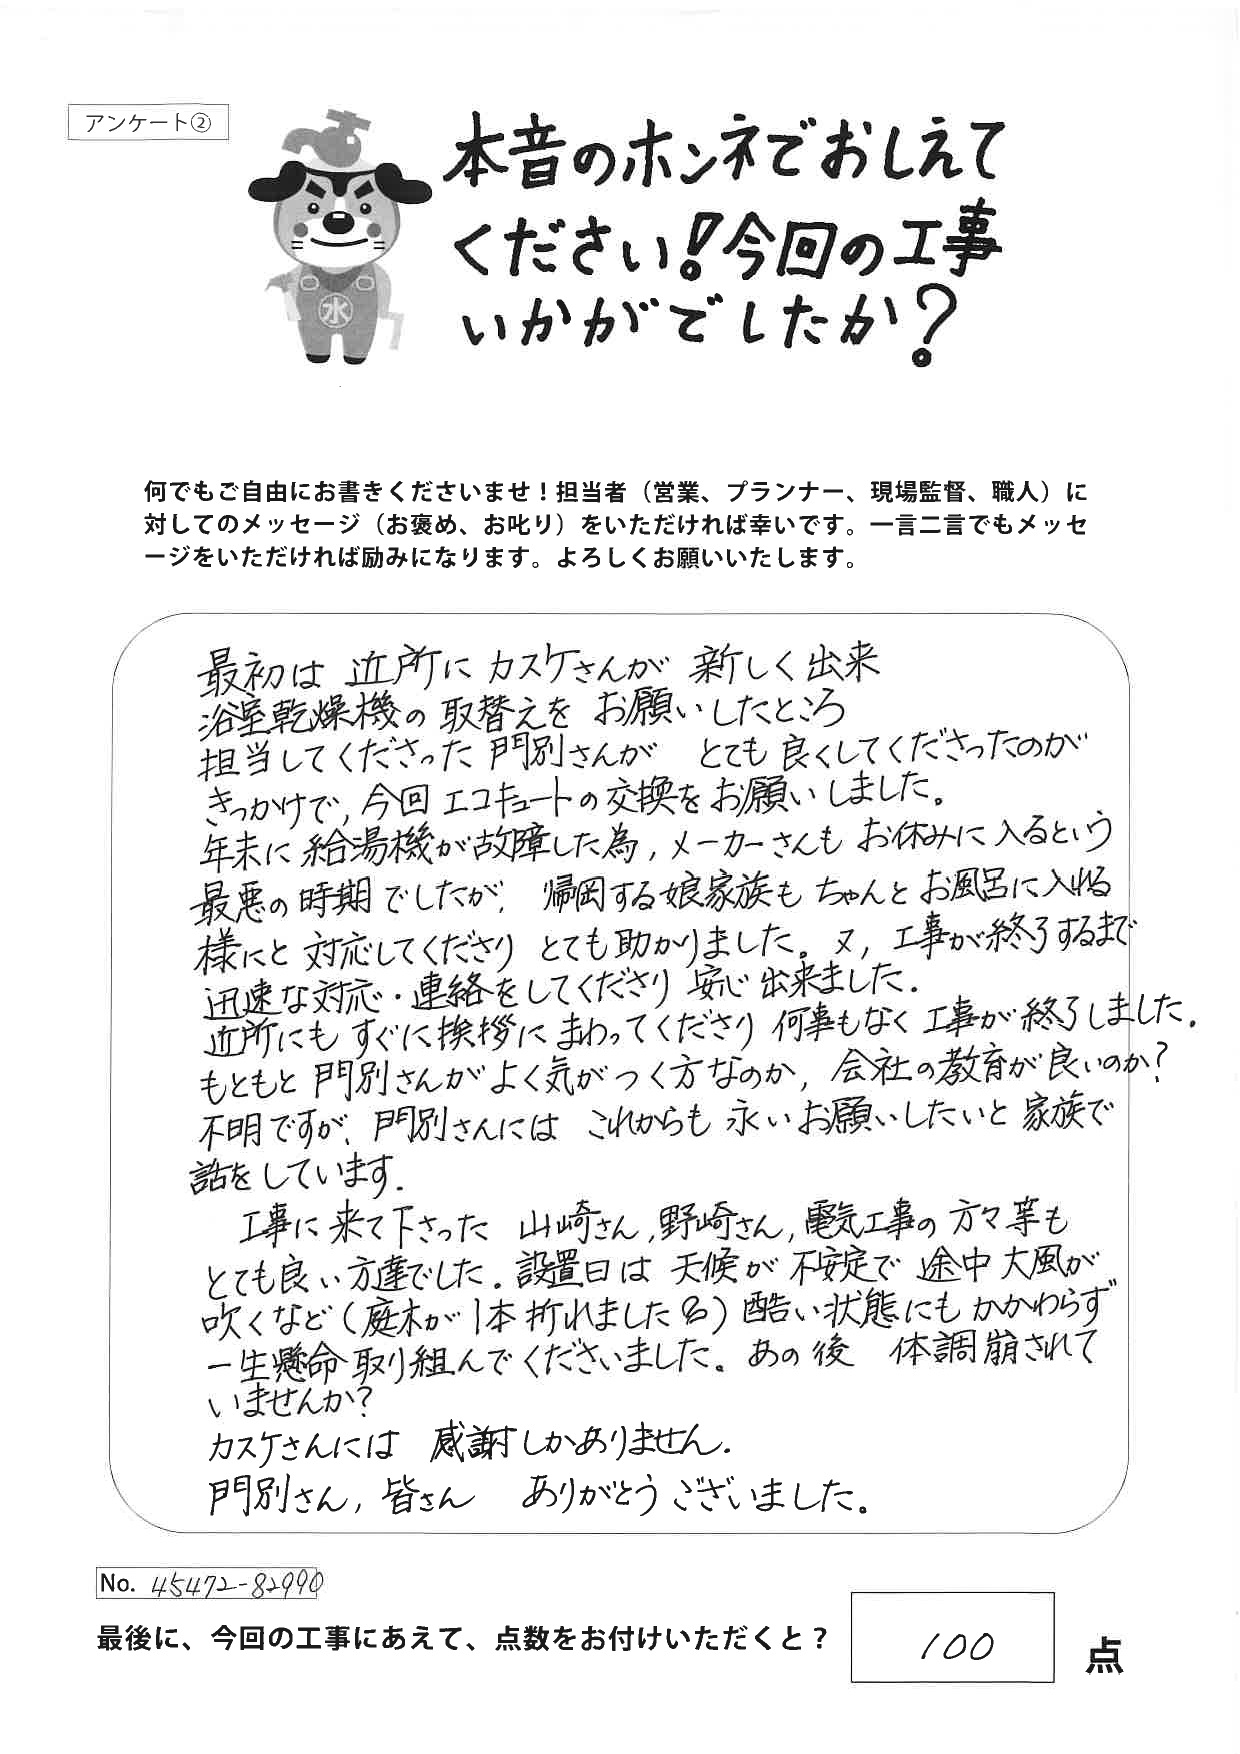 アンケート②
本音のホンネでおしえて
ください!今回の工事
いかがでしたか?
水
何でもご自由にお書きくださいませ！担当者（営業、プランナー、現場監督、職人）に
対してのメッセージ（お褒め、お叱り）をいただければ幸いです。一言二言でもメッセ
ージをいただければ励みになります。よろしくお願いいたします。
最初は 近所に カスケさんが 新しく出来
浴室乾燥機の 取替えを お願いしたところ
担当してくださった 門別さんが とても 良くしてくださったのが
きっかけで, 今回 エコキュートの交換をお願いしました。
年末に 給湯機が故障した為, メーカーさんも お休みに入るという
最悪の時期でしたが, 帰岡する娘家族も ちゃんとお風呂に入れる
様にと 対応してくださり とても助かりました。又, 工事が終了するまで
迅速な対応・連絡をしてくださり 安心出来ました.
近所にも すぐに挨拶に まわってくださり 何事もなく工事が終了しました.
もともと 門別さんがよく気がつく方なのか, 会社の教育が良いのか?
不明ですが, 門別さんには これからも 永いお願いしたいと 家族で
話をしています.
工事に来て下さった 山崎さん, 野崎さん, 電気工事の 方々等も
とても良い方達でした. 設置日は 天候が 不安定で 途中 大風が
吹くなど(庭木が1本折れました) 酷い状態にもかかわらず
一生懸命取り組んでくださいました。あの後 体調崩されて
いませんか?
カスケさんには 感謝しかありません.
門別さん, 皆さん ありがとうございました。
No. 45472-82990
最後に、今回の工事にあえて、点数をお付けいただくと？
100 点